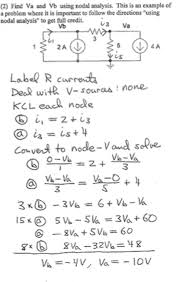 (2) Find Va and Vb using nodal analysis. This is an example of
a problem where it is important to follow the directions "using
nodal analysis" to get full credit.
Vb i3 Va
i1 3 i5
1 2A 5 4A
Label R currents
Deal with V-sources: none
KCL each node
(b) i1 = 2 + i3
(a) i3 = i5 + 4
Convert to node-V and solve
(b) 0-Vb/1 = 2 + Vb-Va/3
(a) Vb-Va/3 = Va-0/5 + 4
3×(b) -3Vb = 6 + Vb - Va
15×(a) 5Vb - 5Va = 3Va + 60
(a) -8Va + 5Vb = 60
8×(b) 8Va - 32Vb = 48
Vb = -4V, Va = -10V